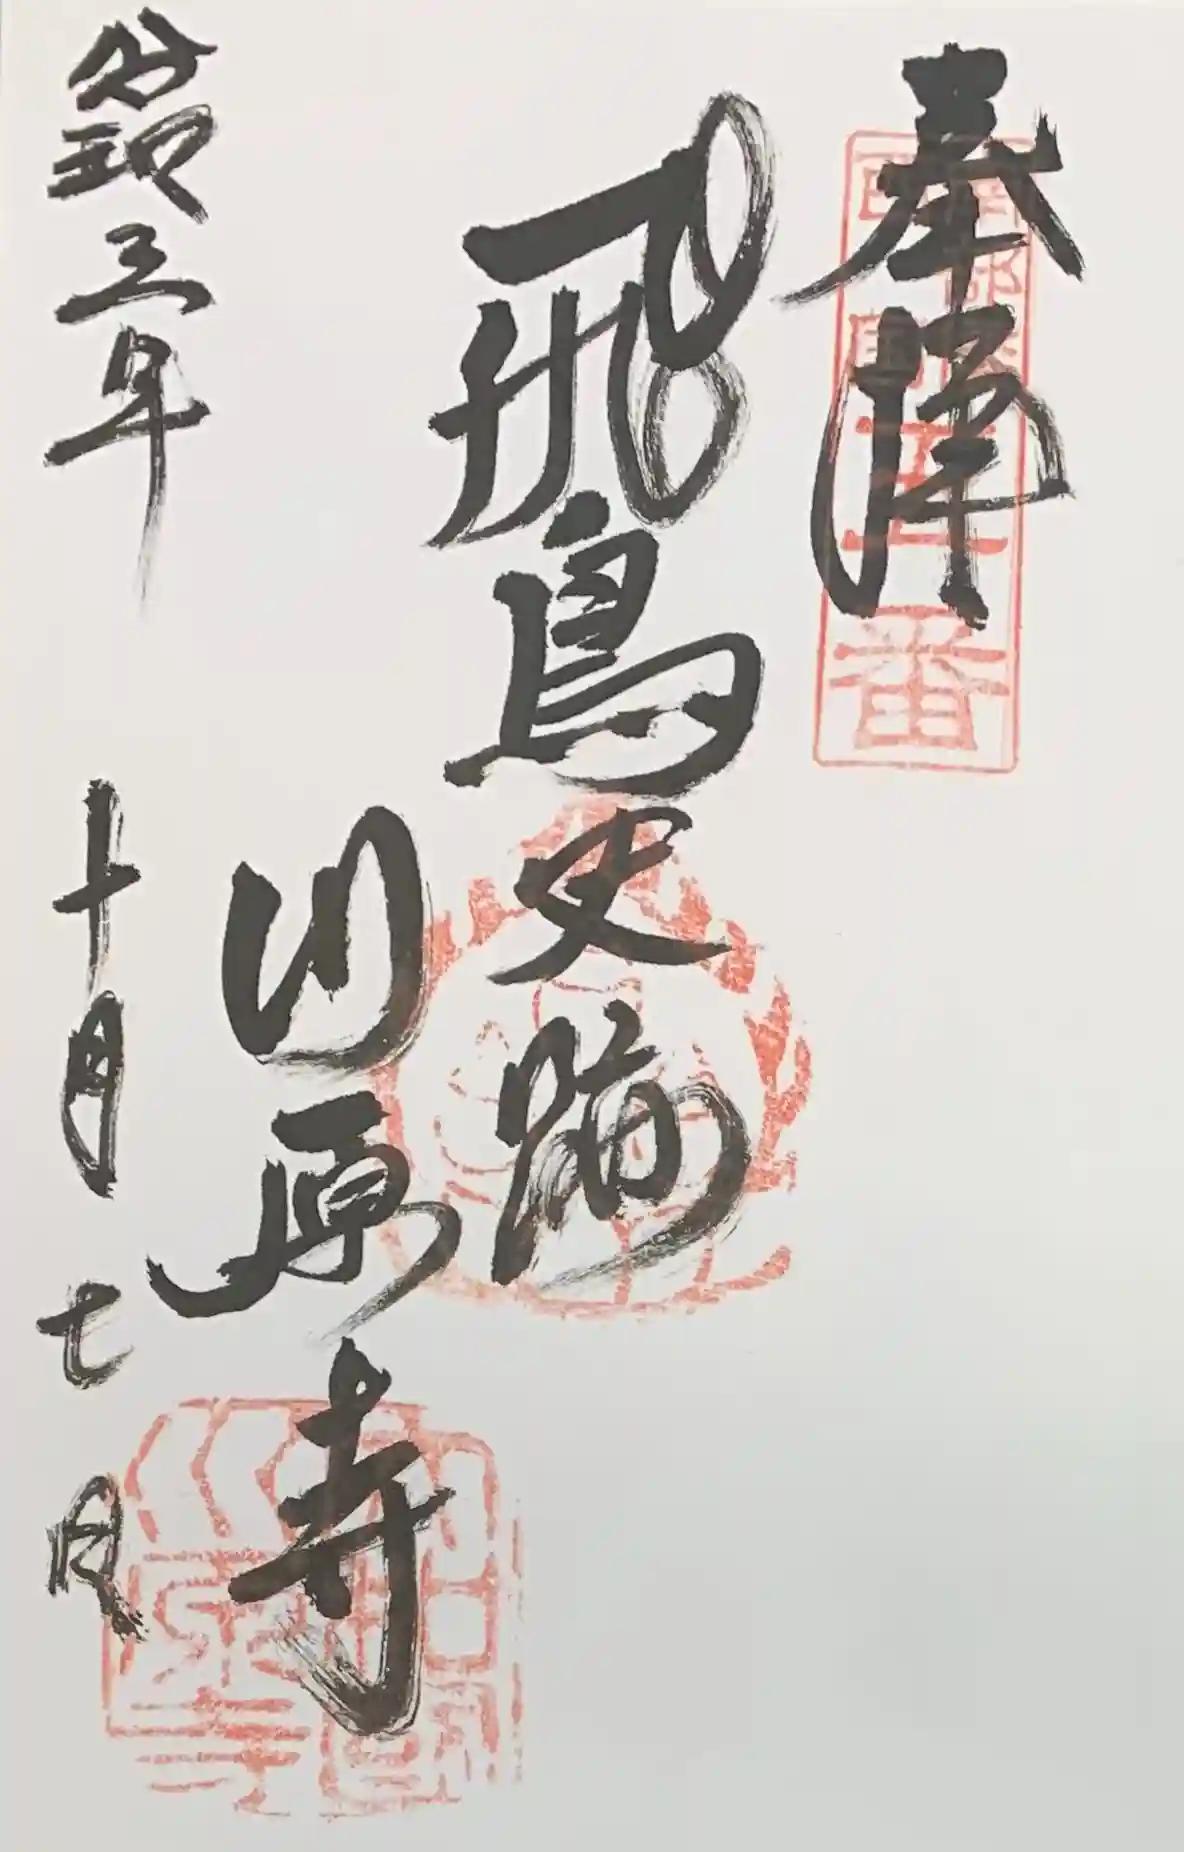 奉拝
飛鳥史跡
川原寺
令和三年十月七日